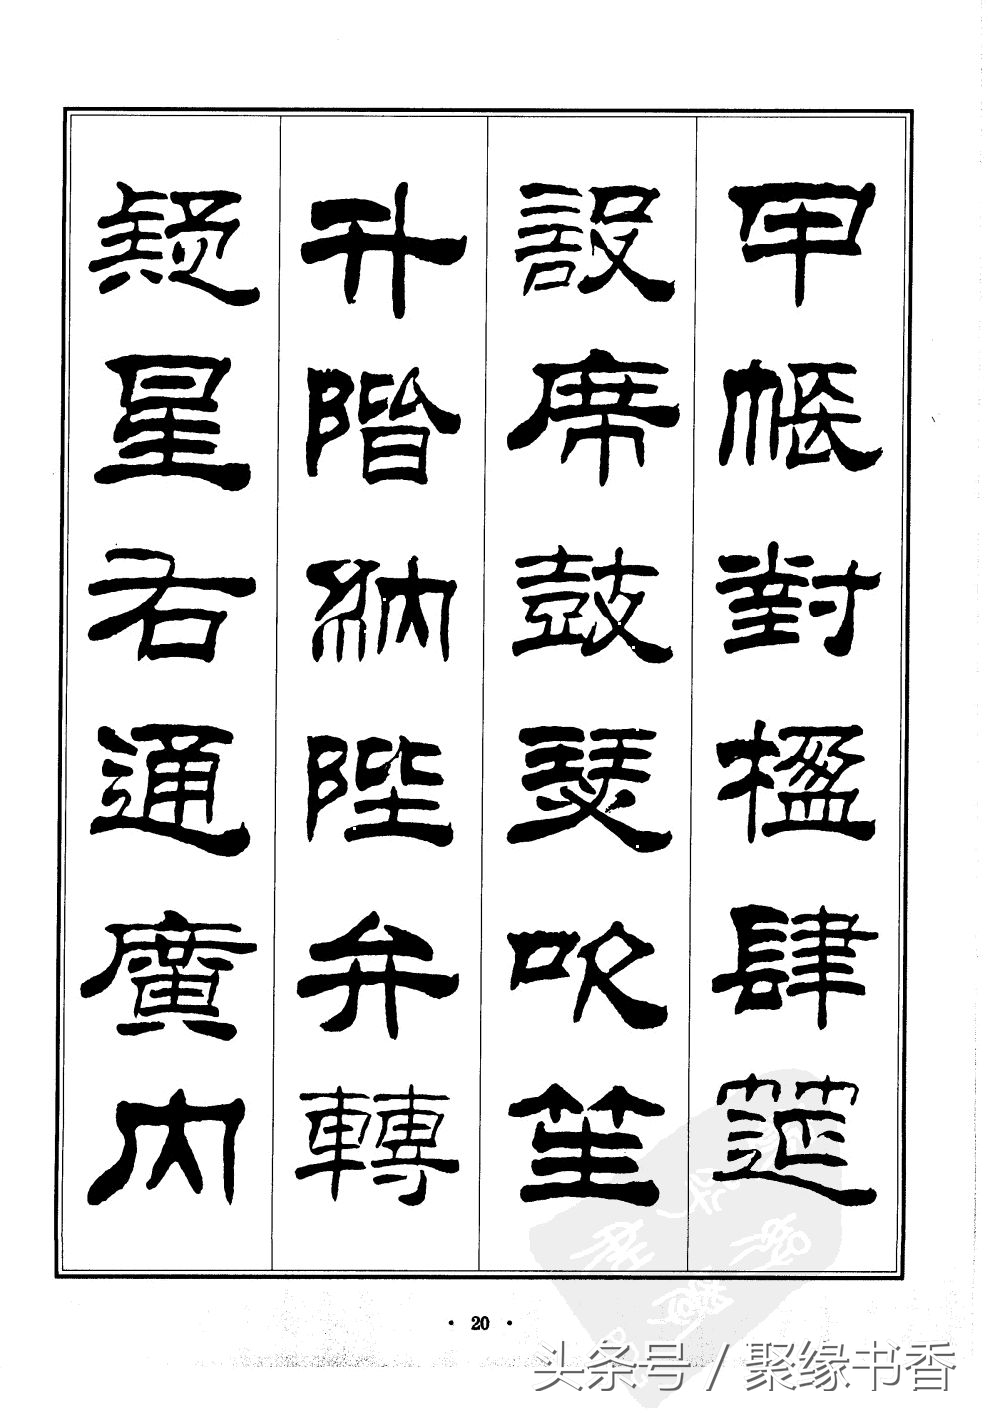 甲帳對楹肆筵
設席鼓瑟吹笙
升階納陛弁轉
疑星右通廣內
· 20 ·
头条号 / 聚缘书香